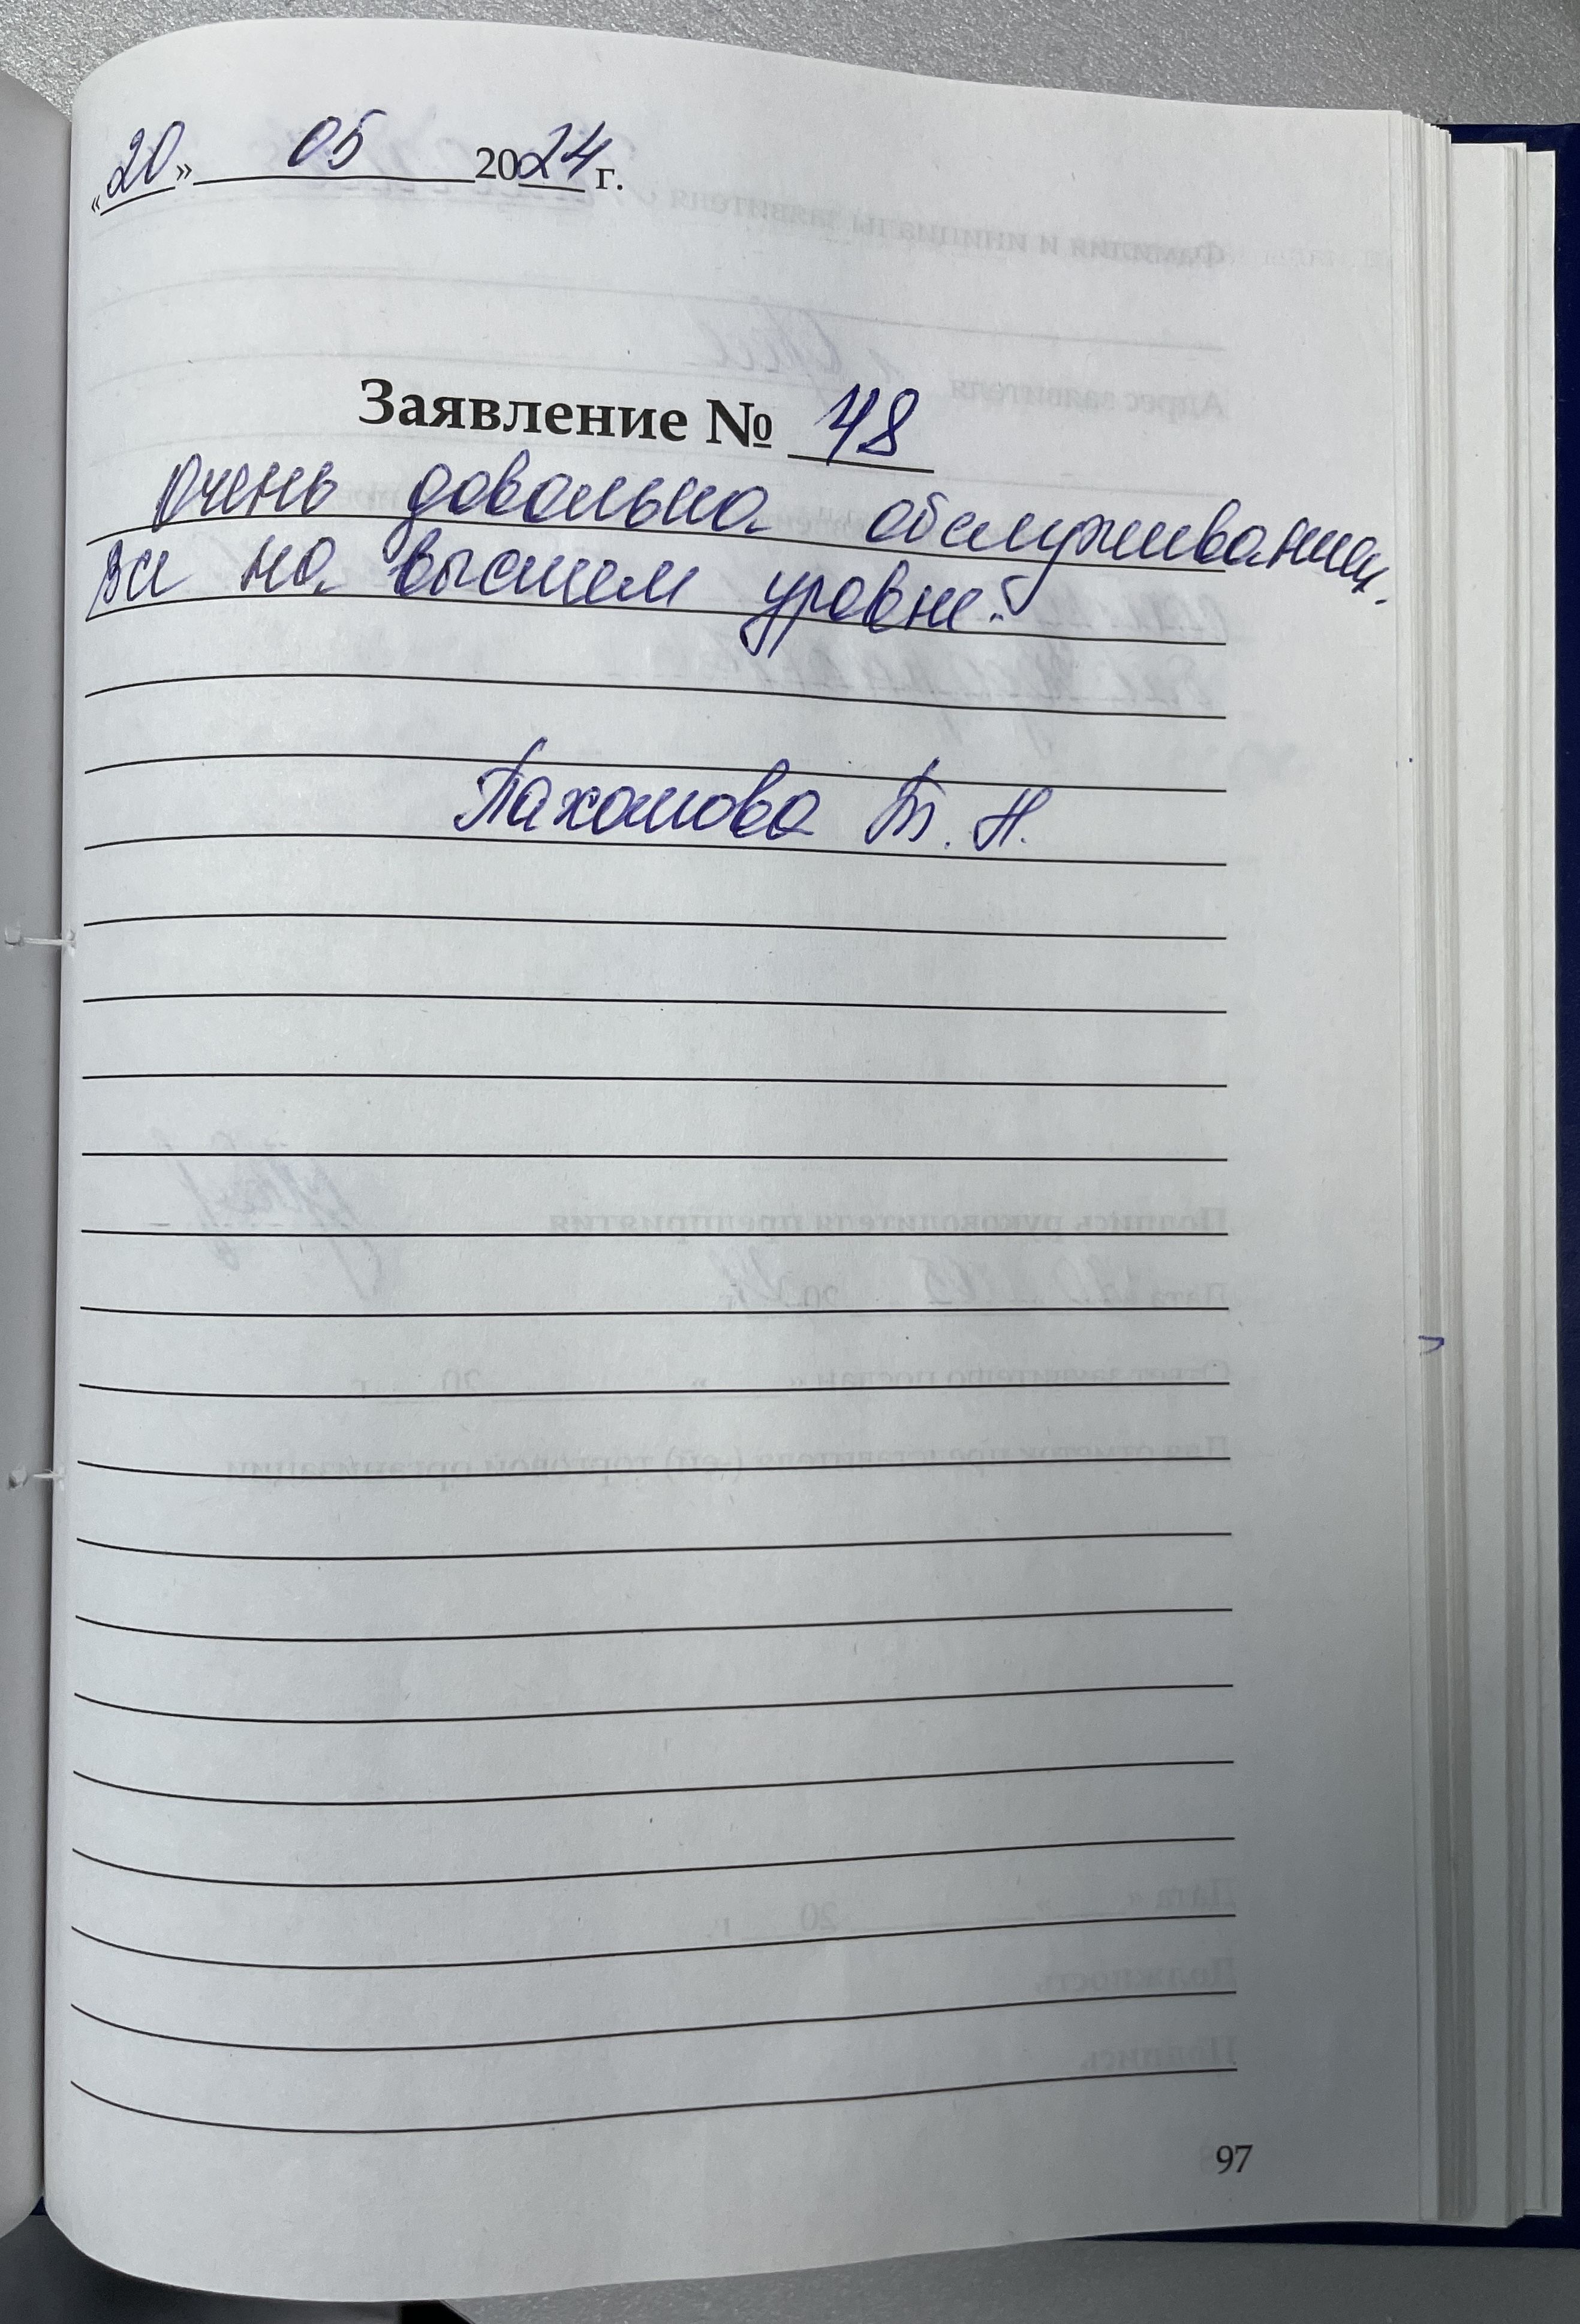 «20» 05 2024 г.
Заявление № 48
Очень довольна обслуживанием.
Все на высшем уровне.
Пахомова Т. Н.
97